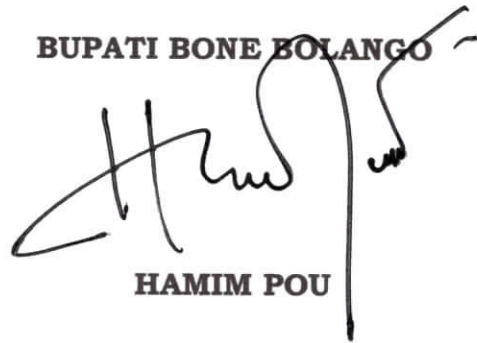 BUPATI BONE BOLANGO
HAMIM POU